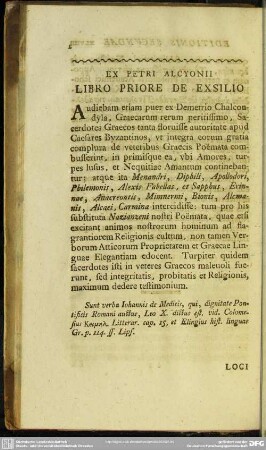 EX PETRI ALCYONII
LIBRO PRIORE DE EXSILIO
Audiebam etiam puer ex Demetrio Chalcon-
dyla, Graecarum rerum peritissimo, Sa-
cerdotes Graecos tanta floruisse autoritate apud
Caesares Byzantinos, vt integra eorum gratia
complura de veteribus Graecis Poëmata com-
busserint, in primisque ea, vbi Amores, tur-
pes lusus, et Nequitiae Amantum contineban-
tur; atque ita Menandri, Diphili, Apollodori,
Philemonis, Alexis Fabellas, et Sapphus, Erin-
nae, Anacreontis, Mimnermi, Bionis, Alcma-
nis, Alcaei, Carmina intercidisse: tum pro his
substituta Nazianzeni nostri Poëmata, quae etsi
excitant animos nostrorum hominum ad fla-
grantiorem Religionis cultum, non tamen Ver-
borum Atticorum Proprietatem et Graecae Lin-
guae Elegantiam edocent. Turpiter quidem
sacerdotes isti in veteres Graecos maleuoli fue-
runt, sed integritatis, probitatis et Religionis,
maximum dedere testimonium.
Sunt verba Iohannis de Medicis, qui, dignitate Pon-
tificis Romani auctus, Leo X. dictus est. vid. Colome-
sius Κειμηλ. Litterar. cap. 15, et Klingius hist. linguae
Gr. p. 224. ss. Lips.
LOCI